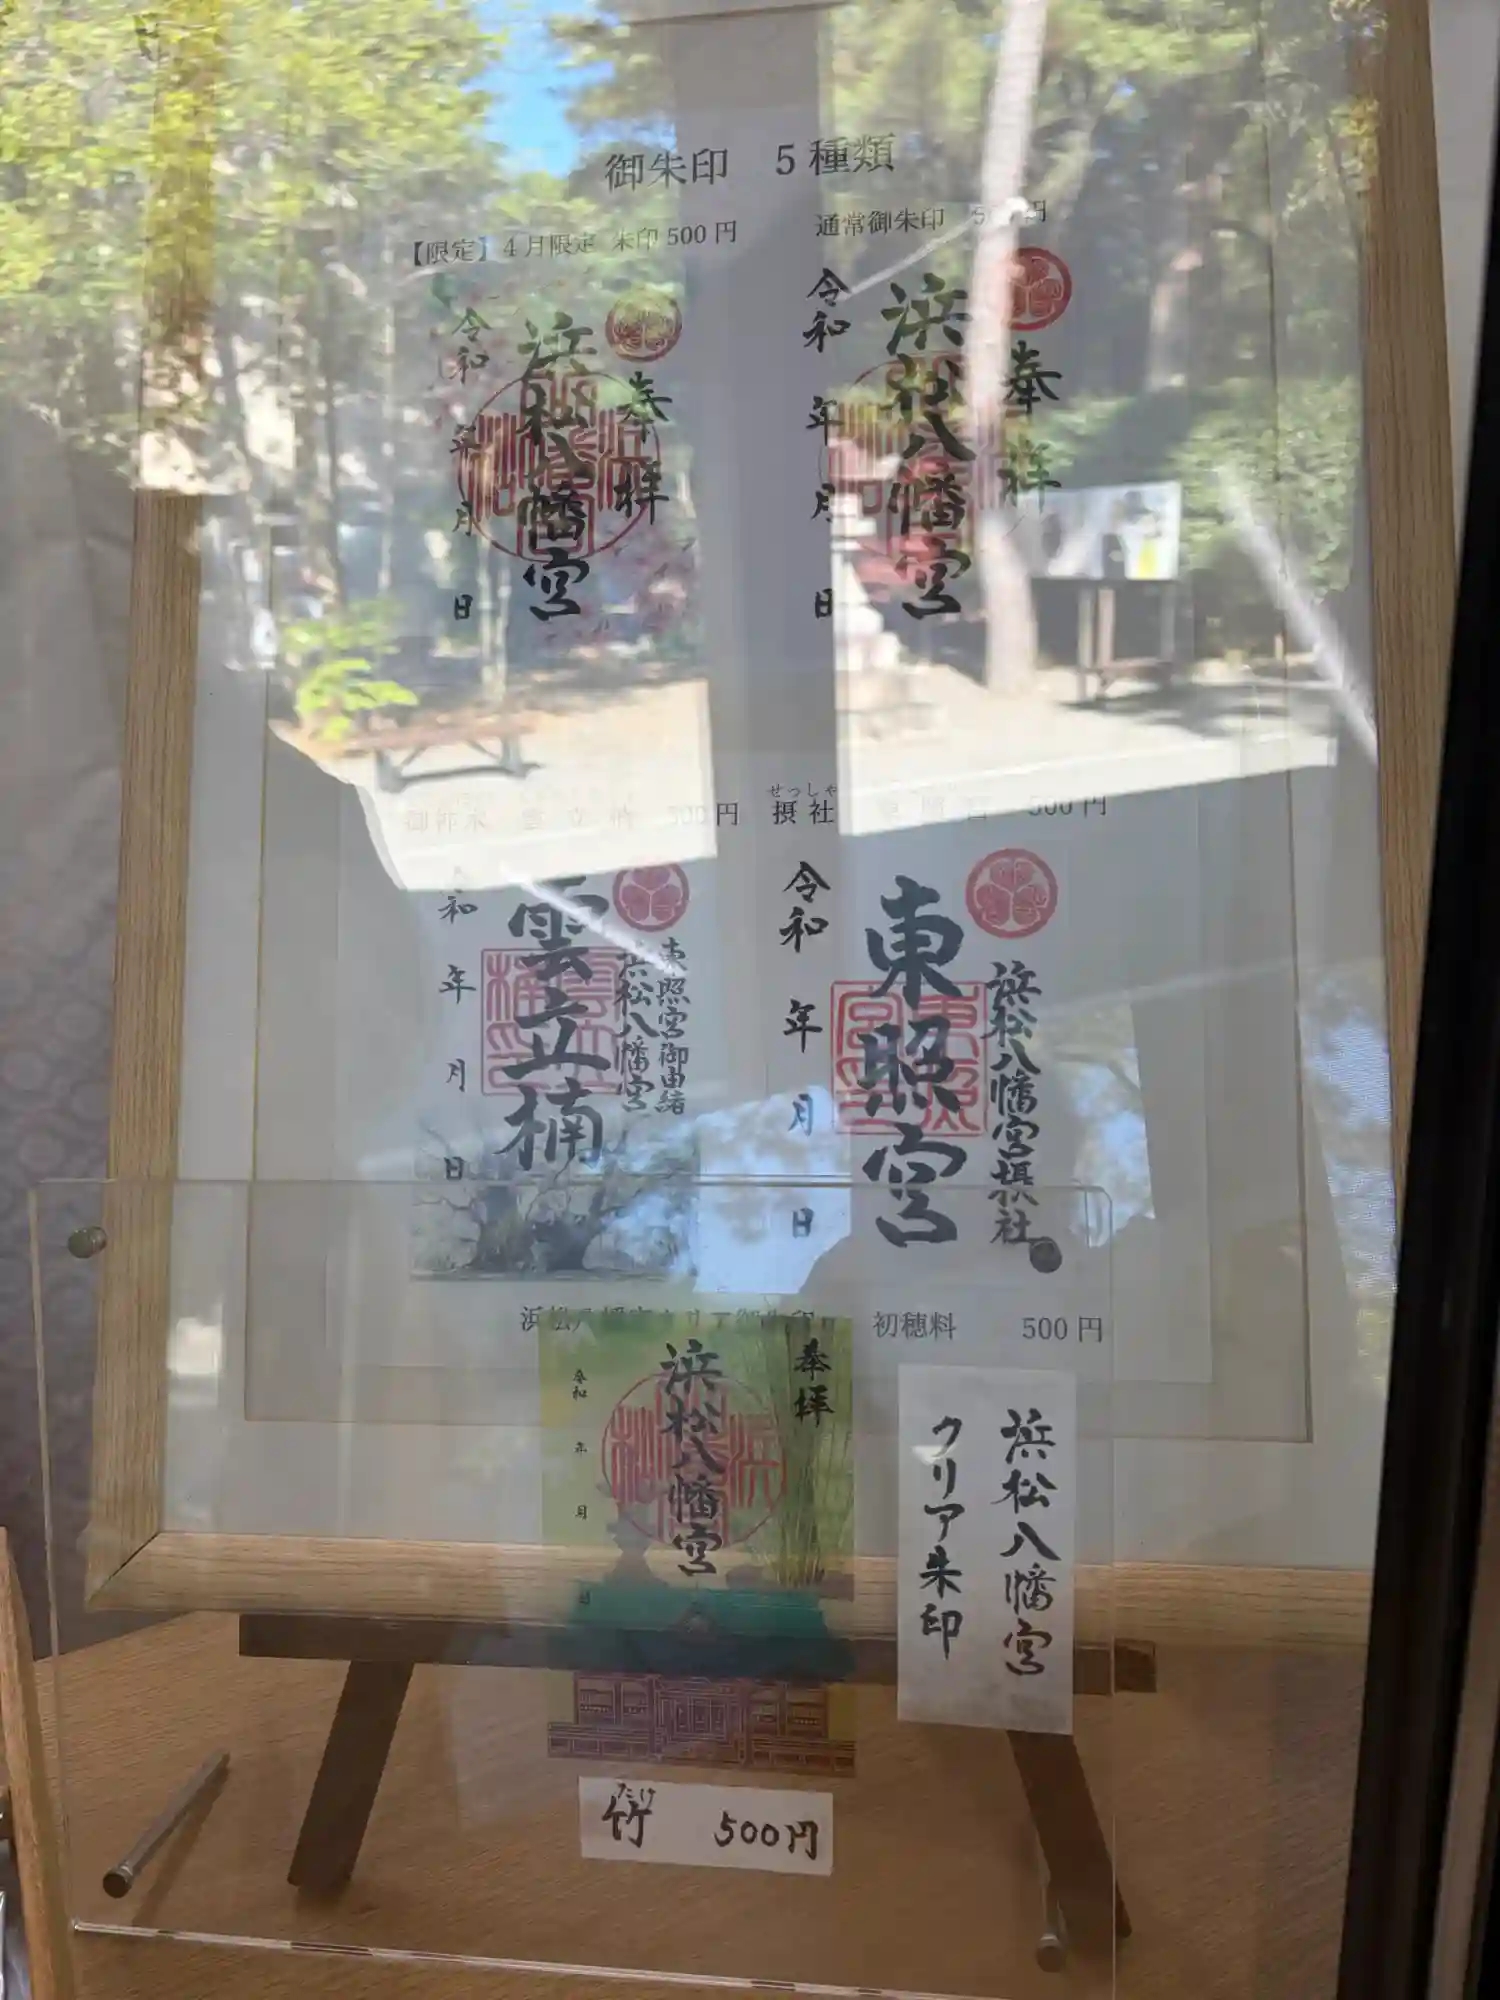 御朱印 5種類
【限定】4月限定 朱印500円
通常御朱印 500円
奉拝
浜松八幡宮
令和 年 月 日
奉拝
浜松八幡宮
令和 年 月 日
御神木 雲立楠 500円
せっしゃ
摂社 東照宮 500円
東照宮御由緒
浜松八幡宮
雲立楠
令和 年 月 日
浜松八幡宮摂社
東照宮
令和 年 月 日
浜松八幡宮クリア御朱印 初穂料 500円
奉拝
浜松八幡宮
令和 年 月 日
浜松八幡宮
クリア朱印
たけ
竹 500円